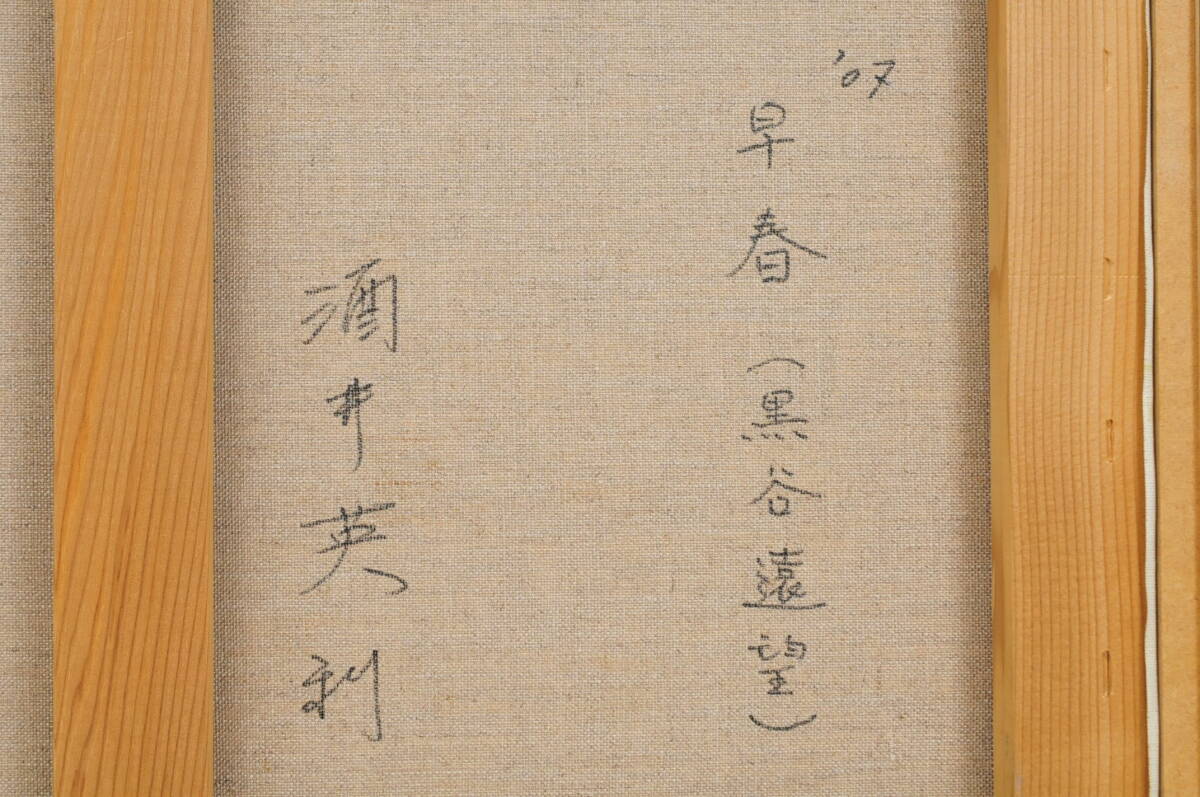 '07
早春（黒谷遠望）
酒井英利